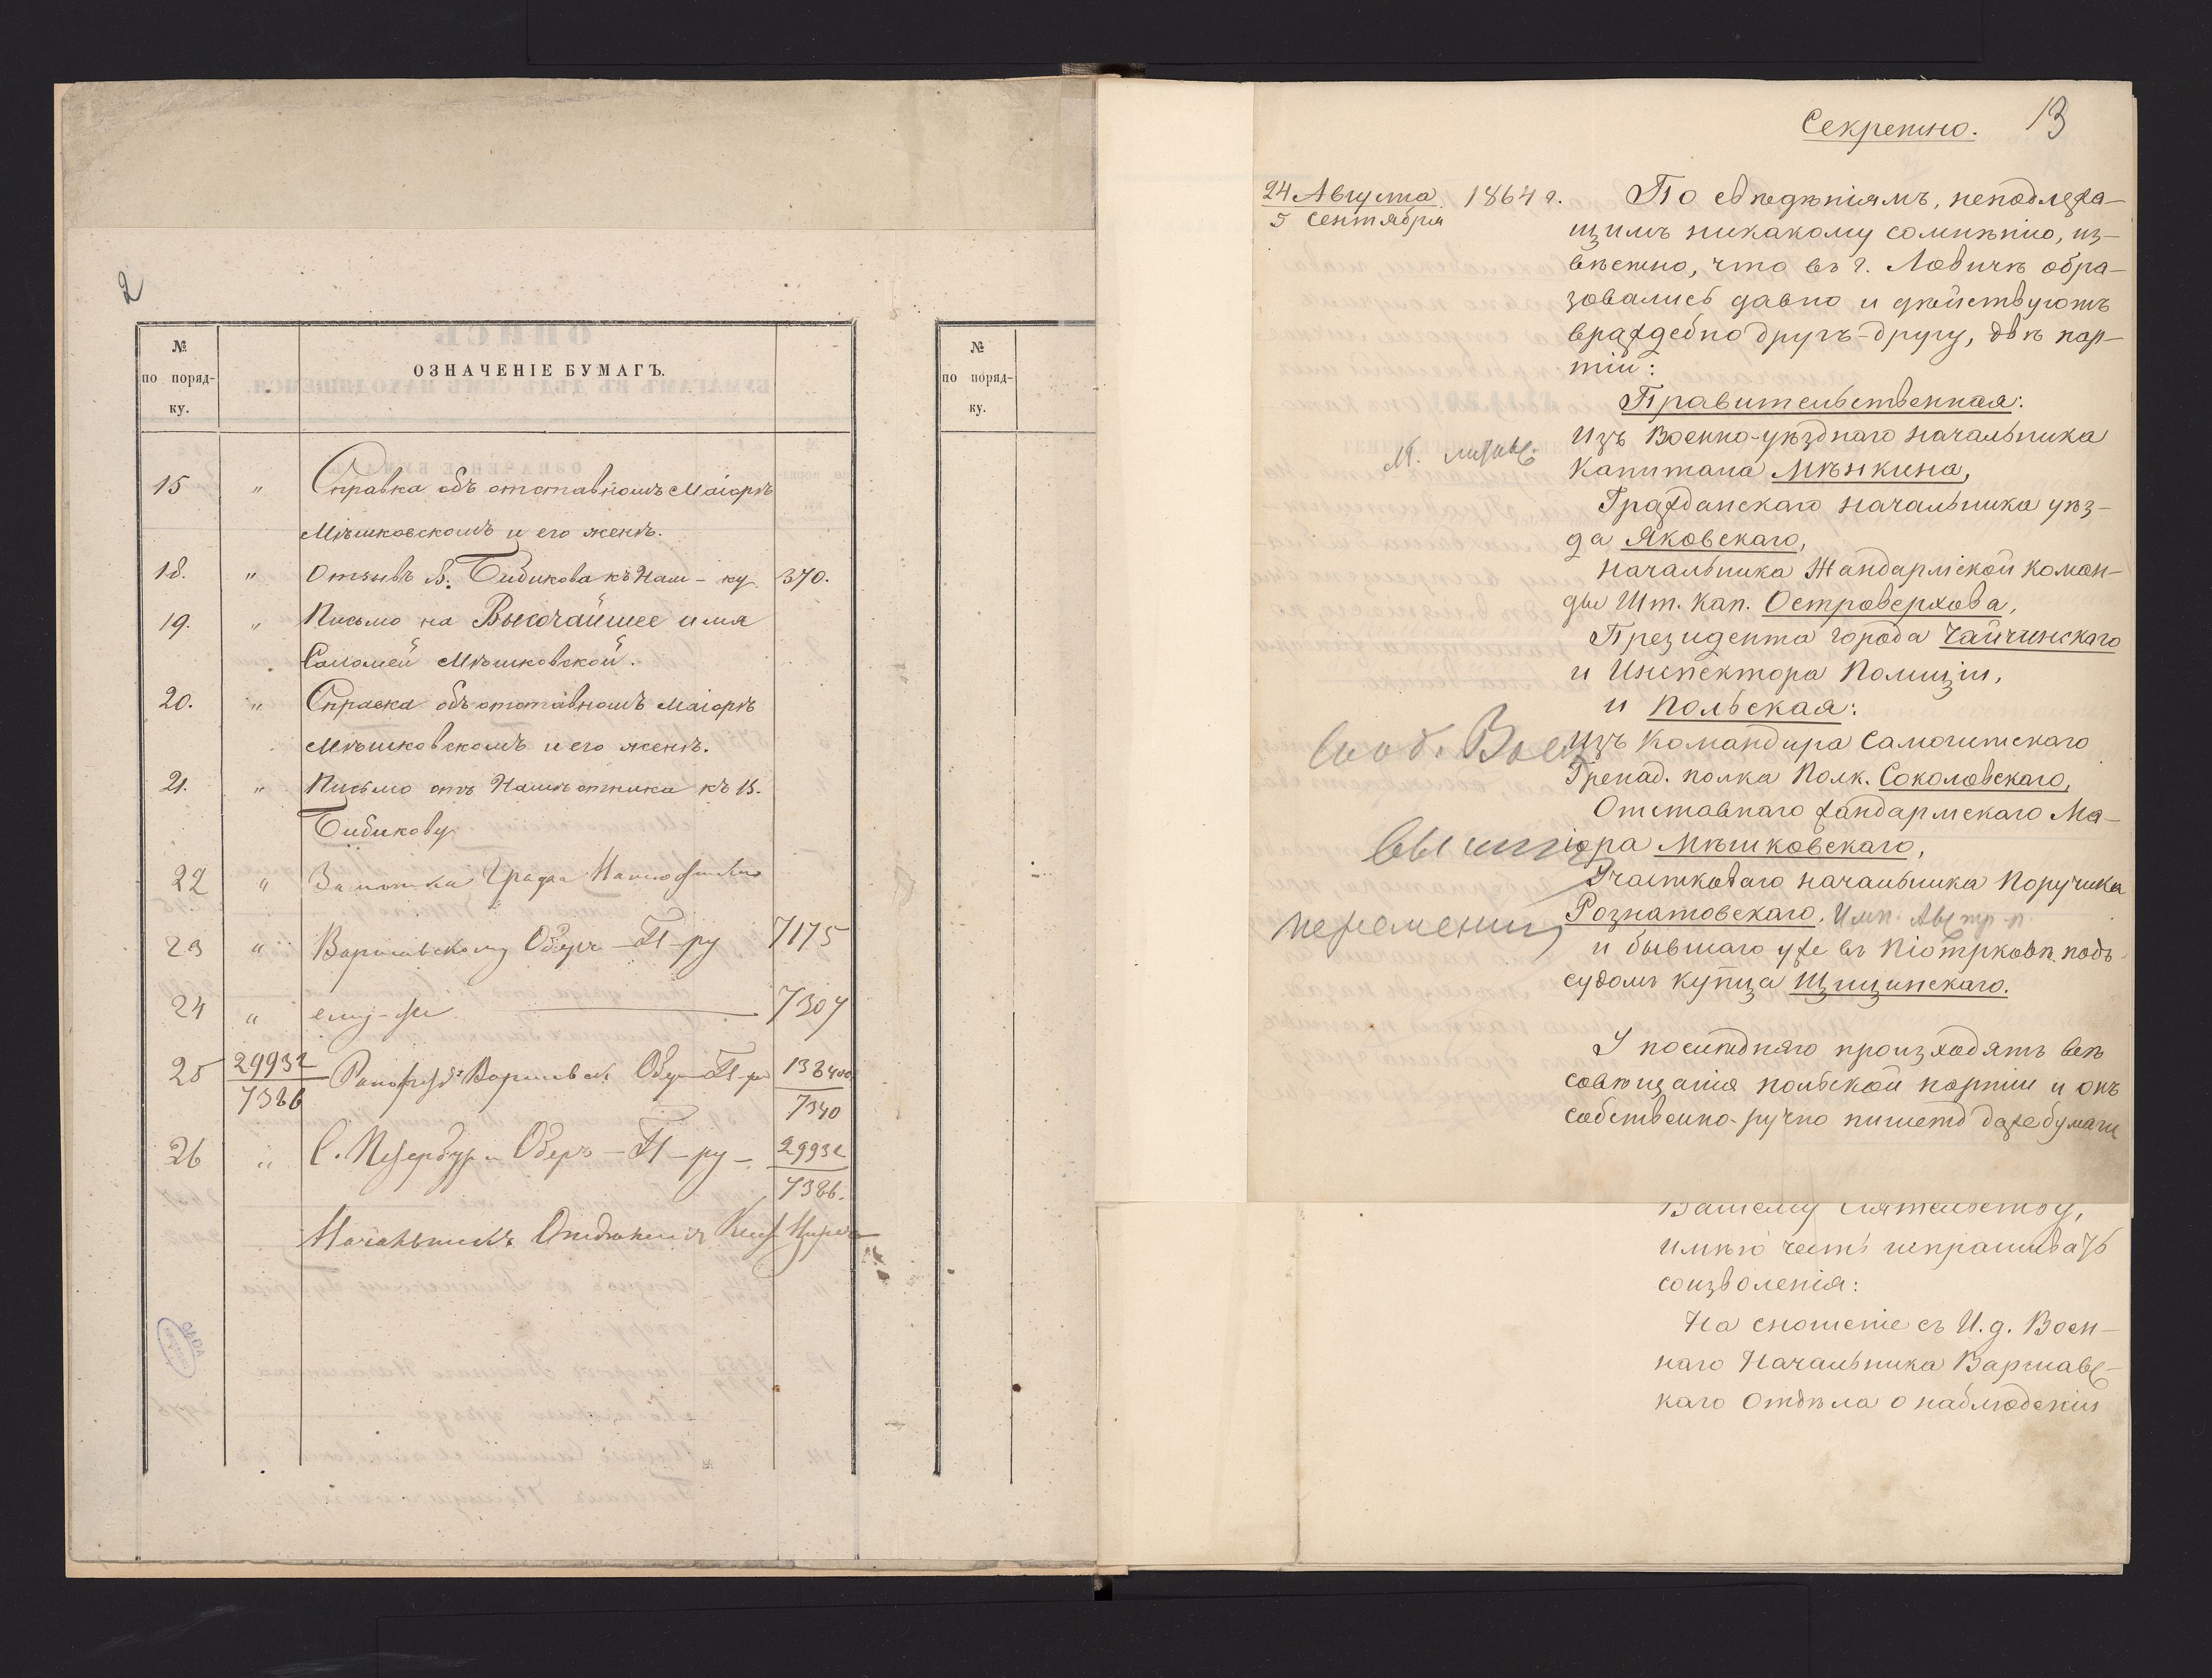 2
№
по поряд-
ку.
ОЗНАЧЕНІЕ БУМАГЪ.
15 " Справка объ отставномъ Маіорѣ
Мѣшковскомъ и его женѣ.
18. " Отзывъ В. Бибикова къ Нам-ку 370.
19. " Письмо на Высочайшее имя
Саломеи Мѣшковской.
20. " Справка объ отставномъ Маіорѣ
Мѣшковскомъ и его женѣ.
21. " Письмо отъ Намѣстника къ В.
Бибикову.
22 " Записка Графа Намѣстника
23 " Варшавскому Оберъ-П-ру 7175
24 " ему-же 7307
25 29932 Варшавск. Обер П-ра
7386 7340
26 " С. Петербур. Оберъ-П-ру - 29932
7386.
Начальникъ Отдѣленія
№
по поряд-
ку.
Секретно. 13
24 Августа 1864 г.
5 Сентября
По свѣдѣніямъ, неподлежа-
щимъ никакому сомнѣнію, из-
вѣстно, что въ г. Ловичѣ обра-
зовались давно и дѣйствуютъ
враждебно другъ-другу, двѣ пар-
тіи:
Правительственная:
Изъ Военно-уѣзднаго начальника
Капитана Мѣнкина,
Гражданскаго начальника уѣз-
да Яковскаго,
Начальника Жандармской коман-
ды Шт. Кап. Островерхова,
Президента города Чайчинскаго
и Инспектора Полиціи,
и Польская:
Изъ Командира Самогитскаго
Гренад. полка Полк. Соколовскаго,
Отставнаго жандармскаго Ма-
іора Мѣшковскаго,
Участковаго начальника Поручика
Рознатовскаго. Имп. Австр. п.
и бывшаго уже въ Піотрковѣ подъ
судомъ купца Щищинскаго.
У послѣдняго произходятъ всѣ
совѣщанія польской партіи и онъ
собственно-ручно пишетъ даже бумаги
Вашему Сіятельству,
имѣю честь испрашивать
соизволенія:
На сношеніе съ И. д. Воен-
наго Начальника Варшавс-
каго Отдѣла о наблюденіи